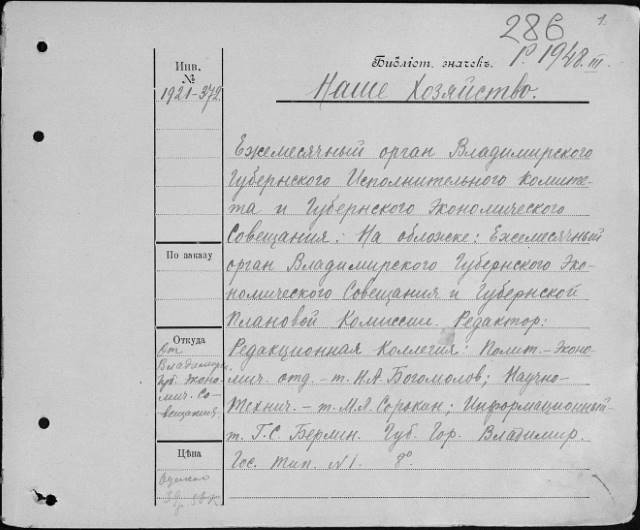 286 1.
Библіот. значекъ. Р. 1948. III.
Инв.
№
1921-372
Наше Хозяйство.
Ежемесячный орган Владимирского
Губернского Исполнительного Комите-
та и Губернского Экономического
Совещания. На обложке: Ежемесячный
орган Владимирского Губернского Эко-
номического Совещания и Губернской
Плановой Комиссии. Редактор:
Редакционная Коллегия: Полит.-Эконо-
мич. отд. - т. Н.А. Богомолов; Научно-
Технич. - т. М.Я. Сорокин; Информационный-
т. Г.С. Берлин. Губ. Гор. Владимир.
Гос. тип. №1. 8°
По заказу
Откуда
От
Владимирск.
Губ. Эконо-
мич. Со-
вещания
Цѣна